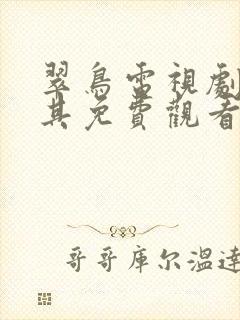 翠鳥電視劇
其免費觀看
哥哥库尔温達